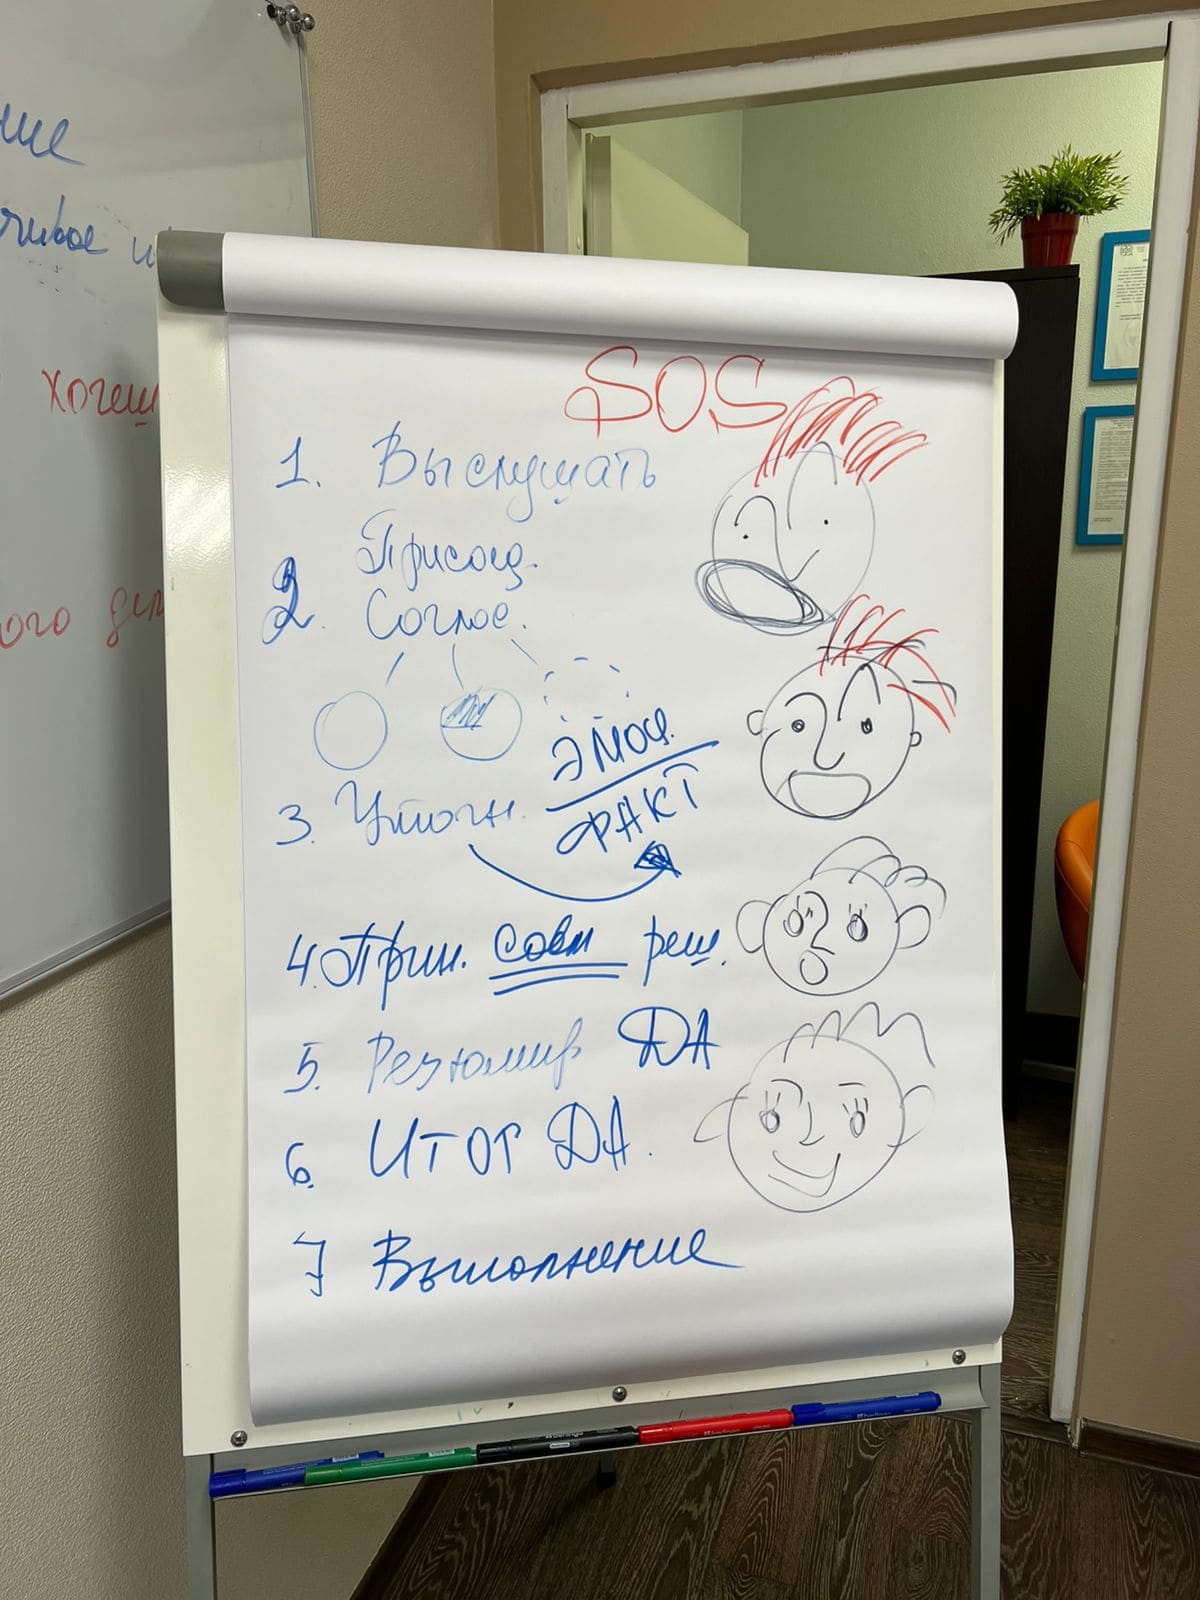 SOS
1. Выслушать
Присоед.
2. Соглас.
ЭМОЦ.
3. Уточн.
ФАКТ
4. Прин. совм реш.
5. Резюмир ДА
6. ИТОГ ДА.
7 Выполнение
хочеш
ого дел